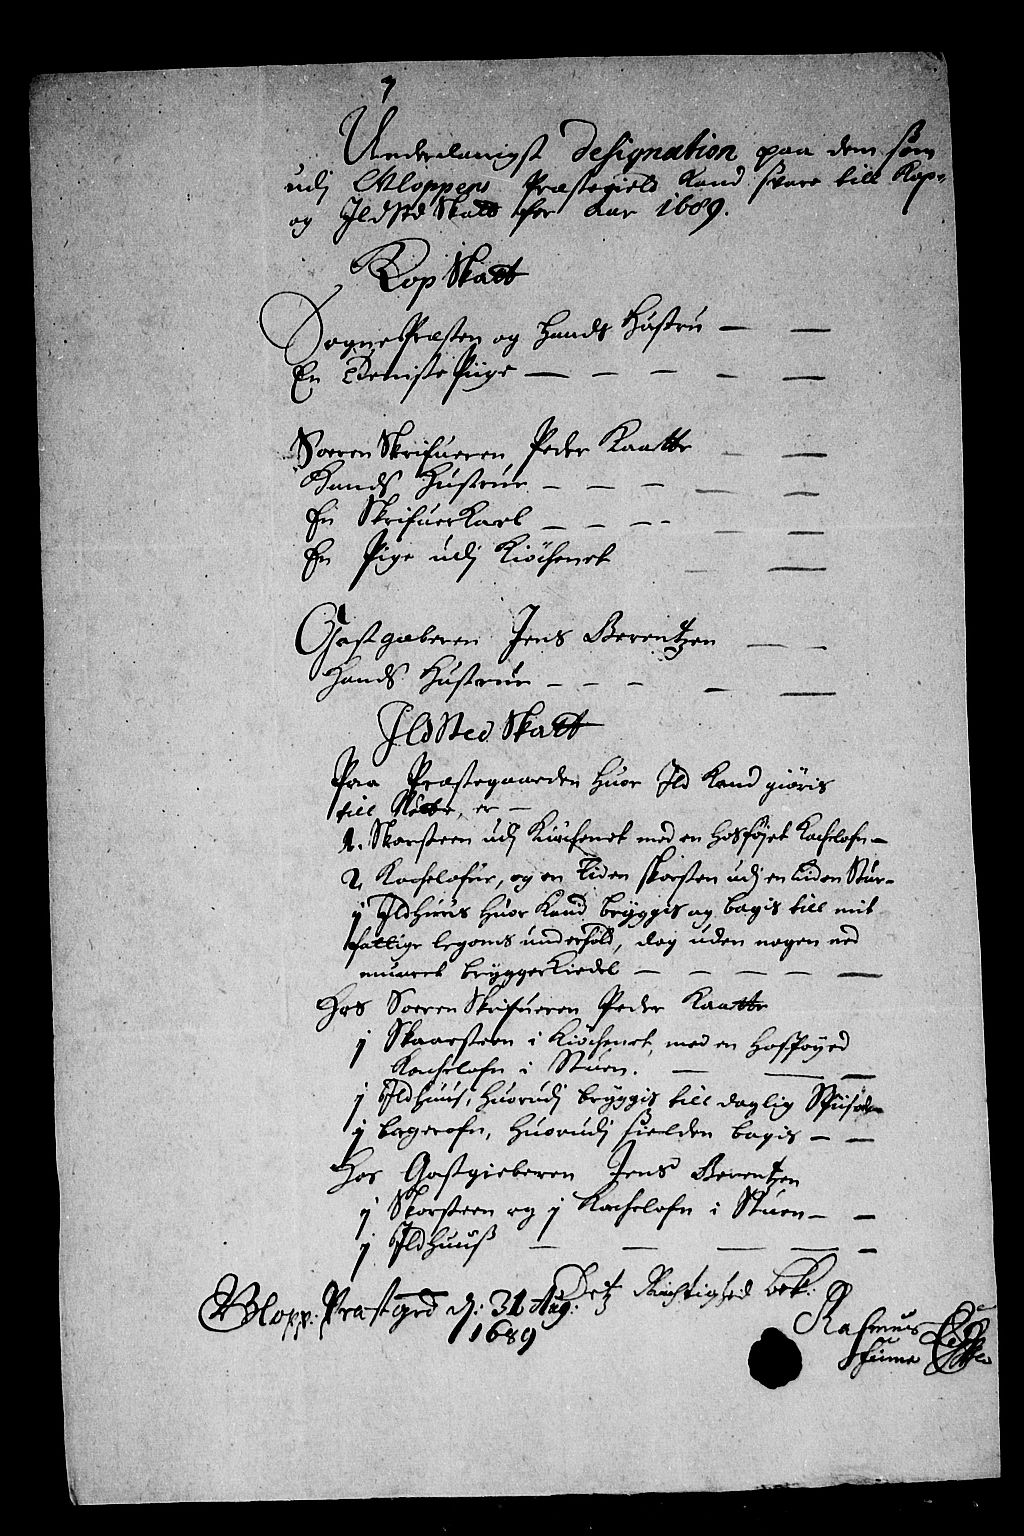 Underdanigst Designation paa dem som
udj Gloppens Præstegield Kand svare till Kop-
og Ildsted Skatt for Aar 1689.
Kop Skatt
SognePræsten og Hands Hústrú
En Pige
Soeren Skrifueren Peder Kaatte
Hands Hustrue
En Skrifuer Karl
En Pige udj Kiöchenet
Gastgieberen Jens Berentzen
Hands Hustrue
Ildsted Skatt
Paa Præstegaarden huor Ild Kand giöris
till Nötte, er
1. Skorsteen udj Kiöchenet med en hosföjet Kachelofn
2 Kachelofne, og en liden skorsten udj en liden Stue
j Ildhuus huor Kand brÿggis og bagis till mit
fattige legoms underhold, dog uden nogen ned
muuret brÿggerkiedel
Hos Soeren Skrifueren Peder Kaatte
j Skaarsteen i Kiöchenet, med en Hosföÿed
Kachelofn i Stuen.
j Ildhuus, huorudj brÿggis till daglig
j bagerofn, huorudj sielden bagis
Hos Gastgieberen Jens Berentzen
j Skorsteen og j Kachelofn i Stuen
j Ildhuuß
Dets Rigtighed bek:
Glopp: Præstgrd d: 31 Aug:
1689
Rasmus